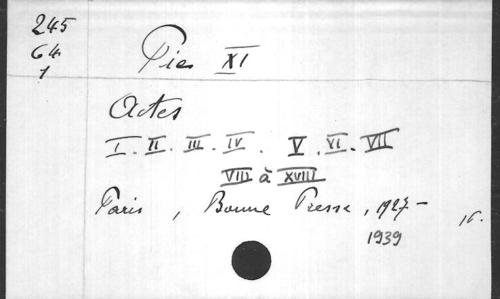 245
64
1
Pie XI
Actes
I. II. III. IV. V. VI. VII
VIII à XVIII
Paris, Bonne Presse, 1927-
1939